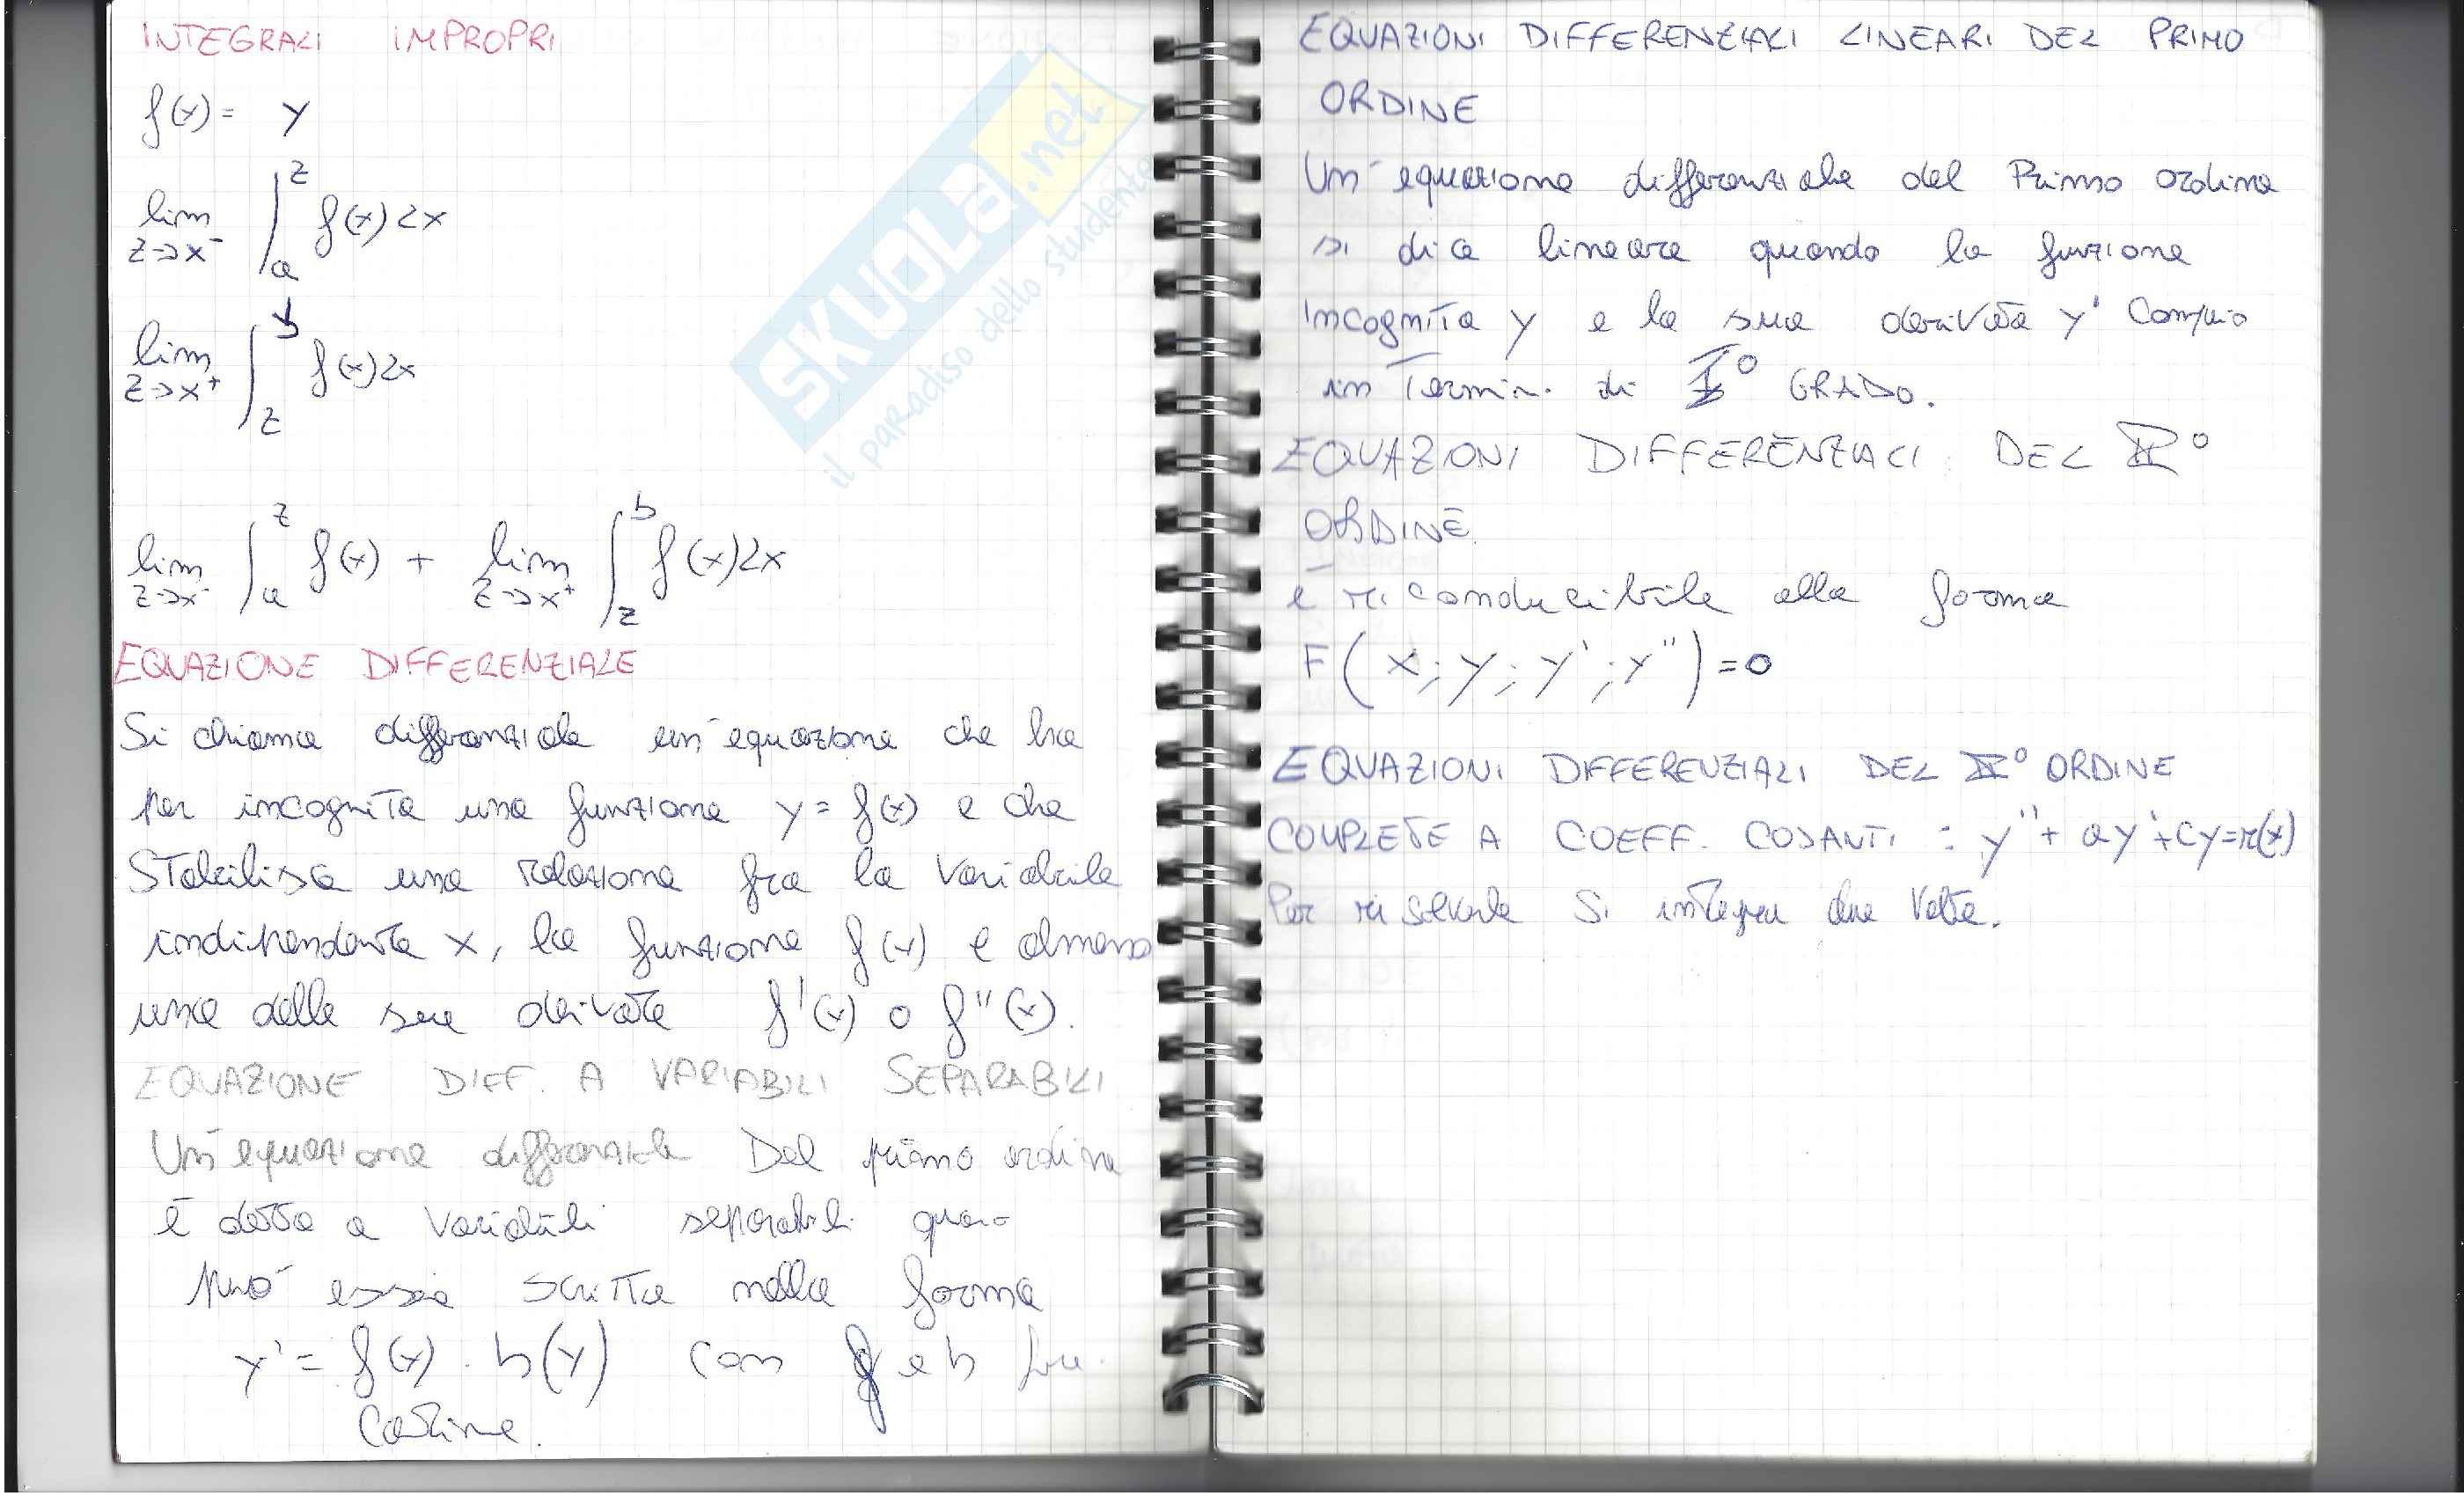 INTEGRALI IMPROPRI
f(x) = y
lim z->x⁻ ∫ₐᶻ f(x)dx
lim z->x⁺ ∫_z^b f(x)dx
lim z->x⁻ ∫ₐᶻ f(x) + lim z->x⁺ ∫_z^b f(x)dx
EQUAZIONE DIFFERENZIALE
Si chiama differenziale un'equazione che ha
per incognita una funzione y = f(x) e che
Stabilisca una relazione fra la variabile
indipendente x, la funzione f(x) e almeno
una delle sue derivate f'(x) o f''(x).
EQUAZIONE DIFF. A VARIABILI SEPARABILI
Un'equazione differenziale Del primo ordine
è detta a variabili separabili
può essere scritta nella forma
y' = f(x) · h(y) con f e h
Continue.
SKUOLA.net
il paradiso dello studente
EQUAZIONI DIFFERENZIALI LINEARI DEL PRIMO
ORDINE
Un'equazione differenziale del Primo ordine
si dice lineare quando la funzione
Incognita y e la sua derivata y'
in Termini di I° GRADO.
EQUAZIONI DIFFERENZIALI DEL II°
ORDINE
è riconducibile alla forma
F(x; y; y'; y'') = 0
EQUAZIONI DIFFERENZIALI DEL II° ORDINE
COMPLETE A COEFF. COSANTI : y'' + ay' + cy = r(x)
Per risolverle Si integra due Volte.